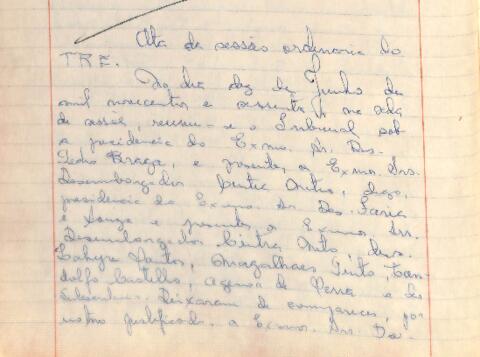 Ata da sessão ordinaria do
TRE.
No dia dez de Junho de
mil novecentos e sessenta, na sala
de sessões, reuniu-se o Tribunal sob
a presidencia do Exmo. Sr. Des.
Pedro Braga, e presentes os Exmos. Srs.
Desembargador Cintra Neto, digo,
presidencia do Exmo. Sr. Des. Faria
e Souza e presentes os Exmos. Srs.
Desembargador Cintra Neto, drs.
Lahyre Santos, Magalhães Pinto, Can-
dolfo Castello, e
Deixaram de comparecer, por
motivo justificado, o Exmos. Srs. De